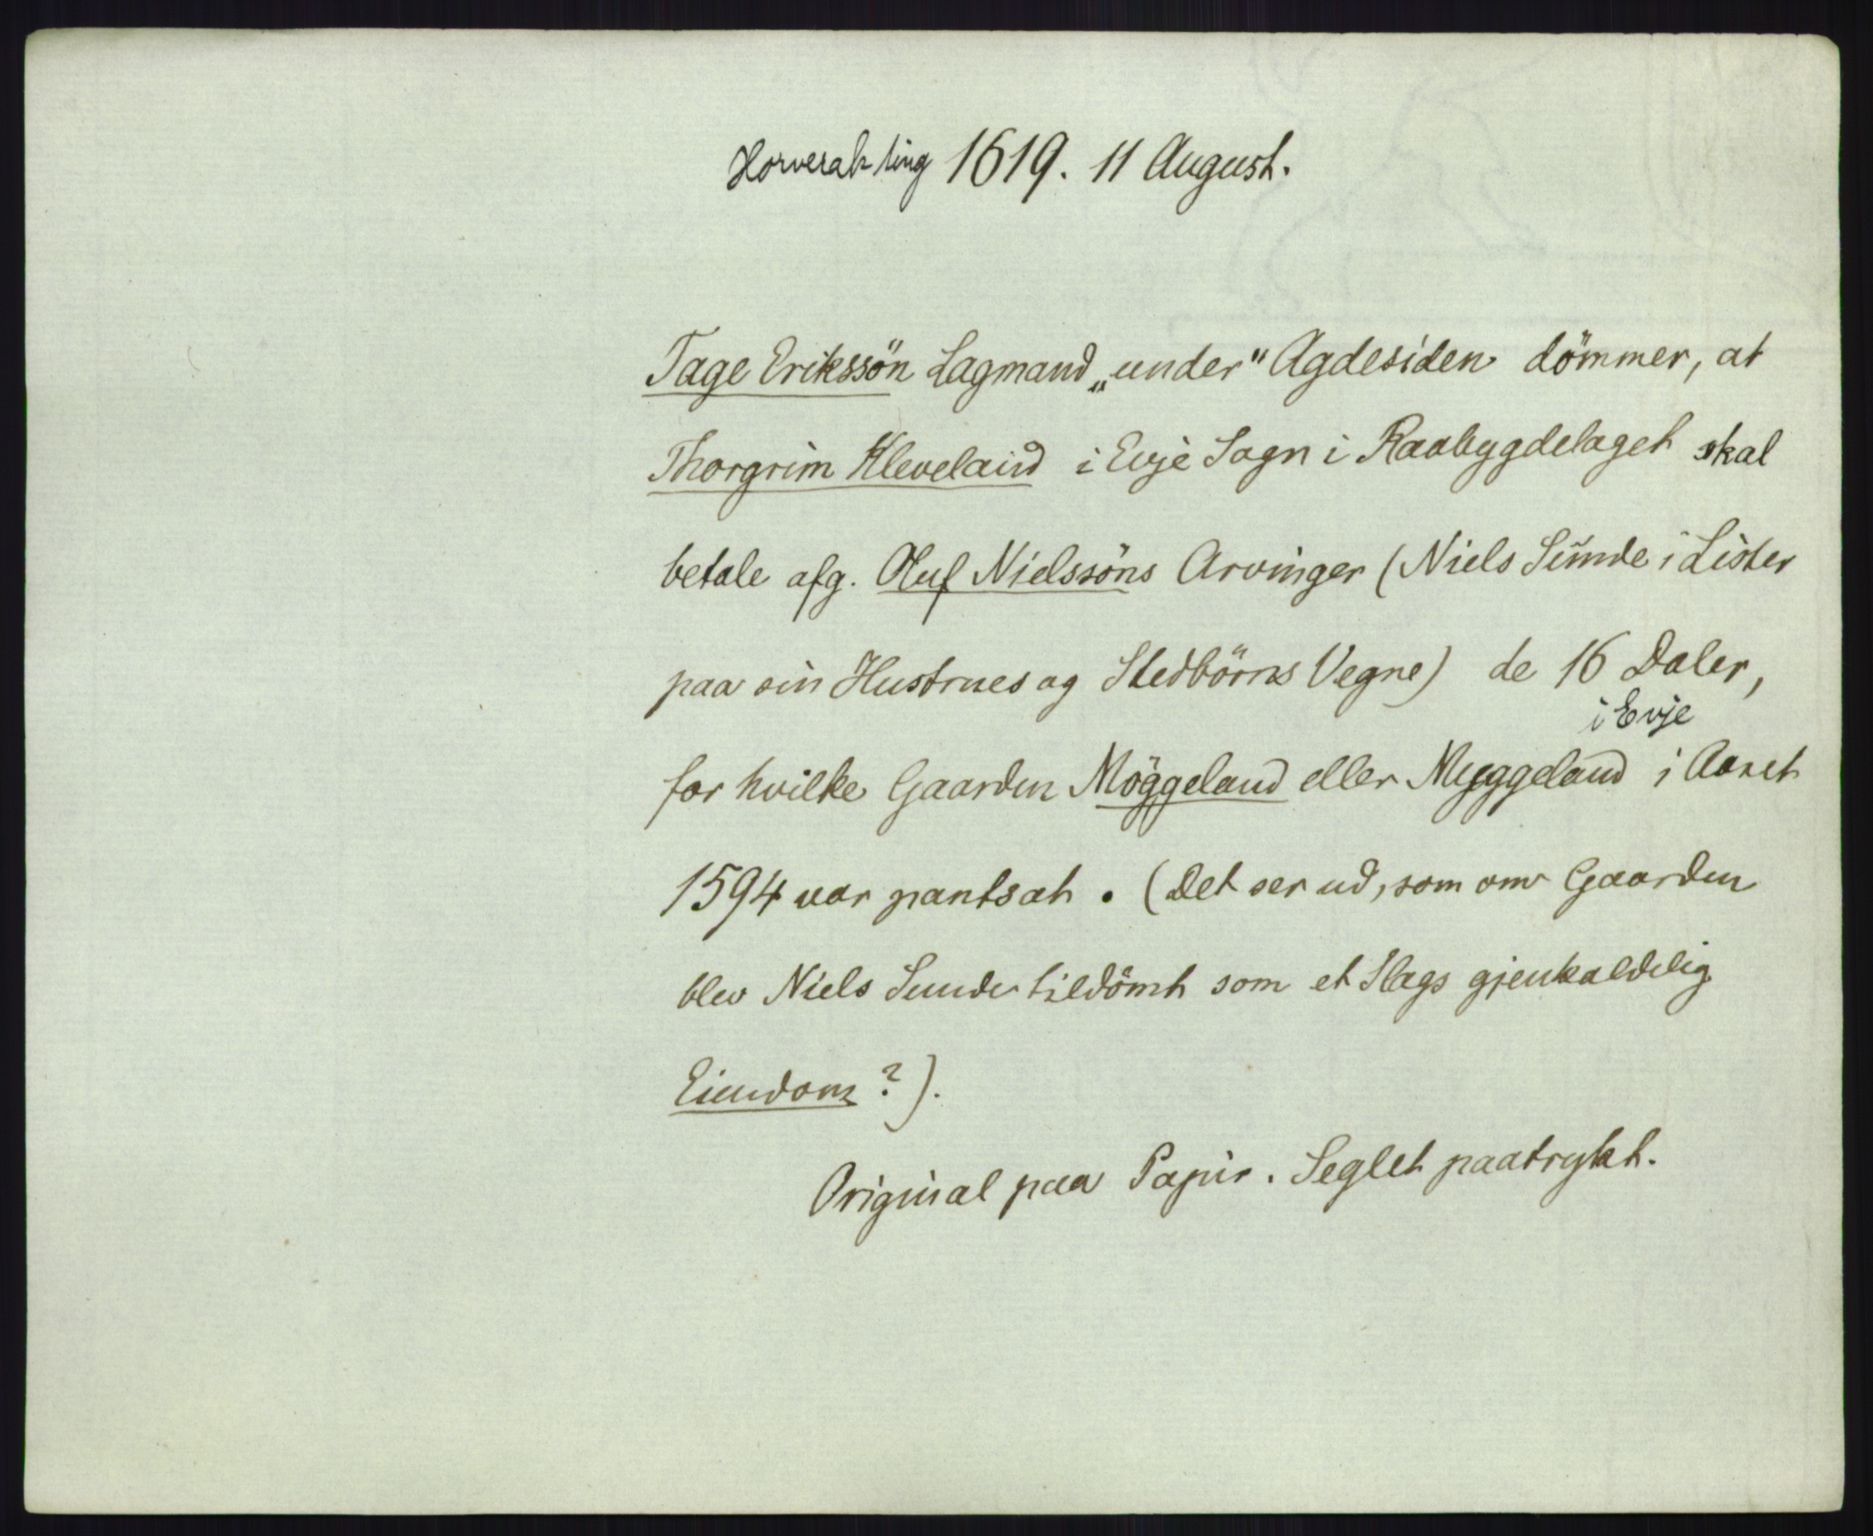 Horverak ting 1619. 11 August.
Tage Erikssön Lagmand „under" Agdesiden dömmer, at
Thorgrim Kleveland i Evje Sogn i Raabygdelaget skal
betale afg. Oluf Nielssöns Arvinger (Niels Sŭnde i Lister
paa sin Hustrues og Stedbörns Vegne) de 16 Daler,
i Evje
for hvilke Gaarden Möggeland eller Myggeland i Aaret
1594 var pantsat. (Det ser ud, som om Gaarden
blev Niels Sunde tildömt som et Slags gjenkaldelig
Eiendom?).
Original paa Papir. Seglet paatrykt.